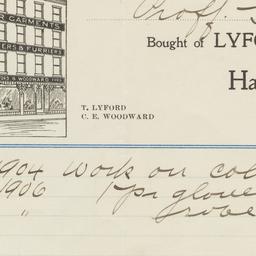 R GARMENTS
ERS & FURRIERS
ORD & WOODWARD
Proff.
Bought of LYFO
Ha
T. LYFORD
C. E. WOODWARD
1904 Work on col
1906 1 pr glove
" robe